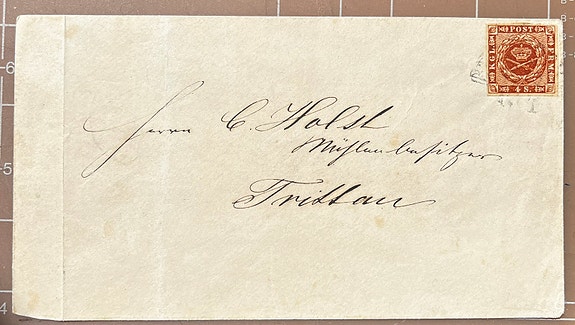 KGL POST FRM
4 S.
Herrn C. Holst
Mühlenbesitzer
Trittau
6
5